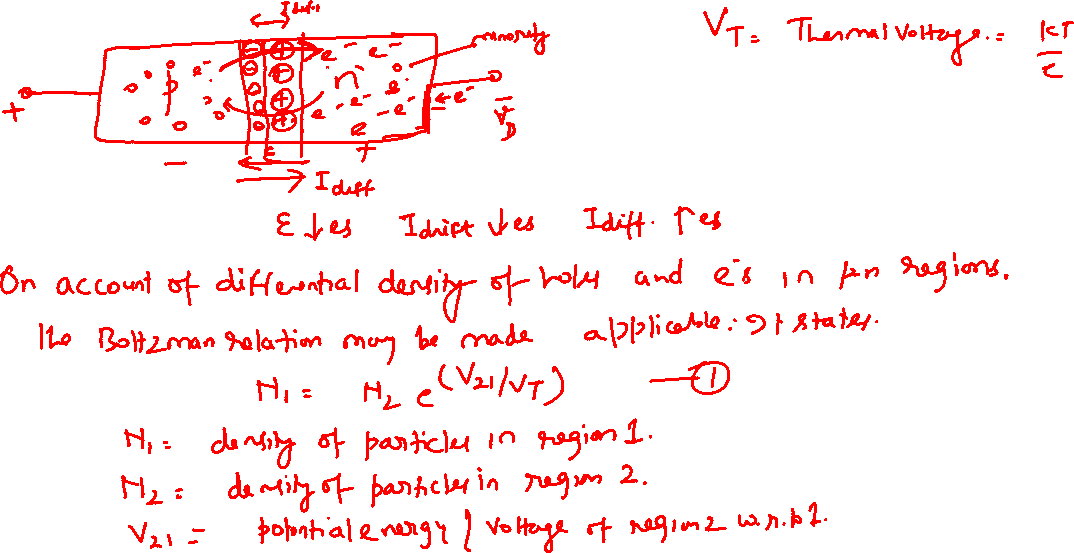 I diff.
V_T = Thermal Voltage. = kT/e
minority
+ p e⁻ n e⁻ V_D
E
- +
I diff
E ↓es Idrift ↓es Idiff. ↑es
On account of differential density of holes and e⁻s in pn regions.
The Boltzman relation may be made applicable. It states.
N₁ = N₂ e^(V₂₁/V_T) — ①
N₁ = density of particles in region 1.
N₂ = density of particles in region 2.
V₂₁ = potential energy / voltage of region 2 w.r.to 1.